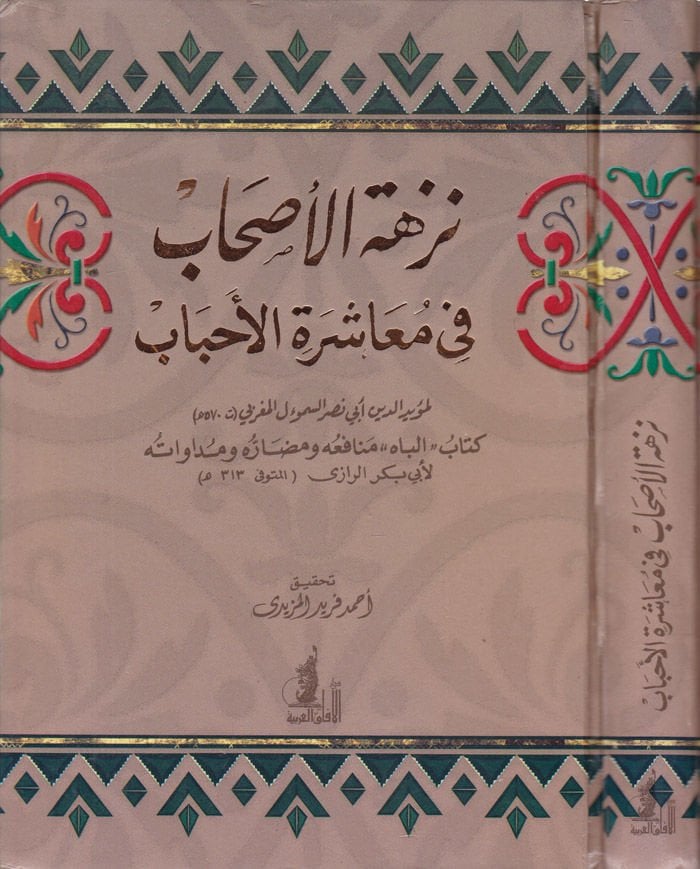 نزهة الأصحاب
في مُعَاشَرَةِ الأَحبَابْ
لمؤيد الدين أبي نصر السموءل المغربي (ت ٥٧٠هـ)
كتابُ "الباه" مَنافعُه ومضارُّه ومُداواتُه
لأبي بكر الرازي (المتوفى ٣١٣ هـ)
تحقيق
أحمد فريد المزيدي
الآفاق العربية
نزهة الأصحاب في مُعَاشَرَةِ الأَحبَابْ
الآفاق العربية